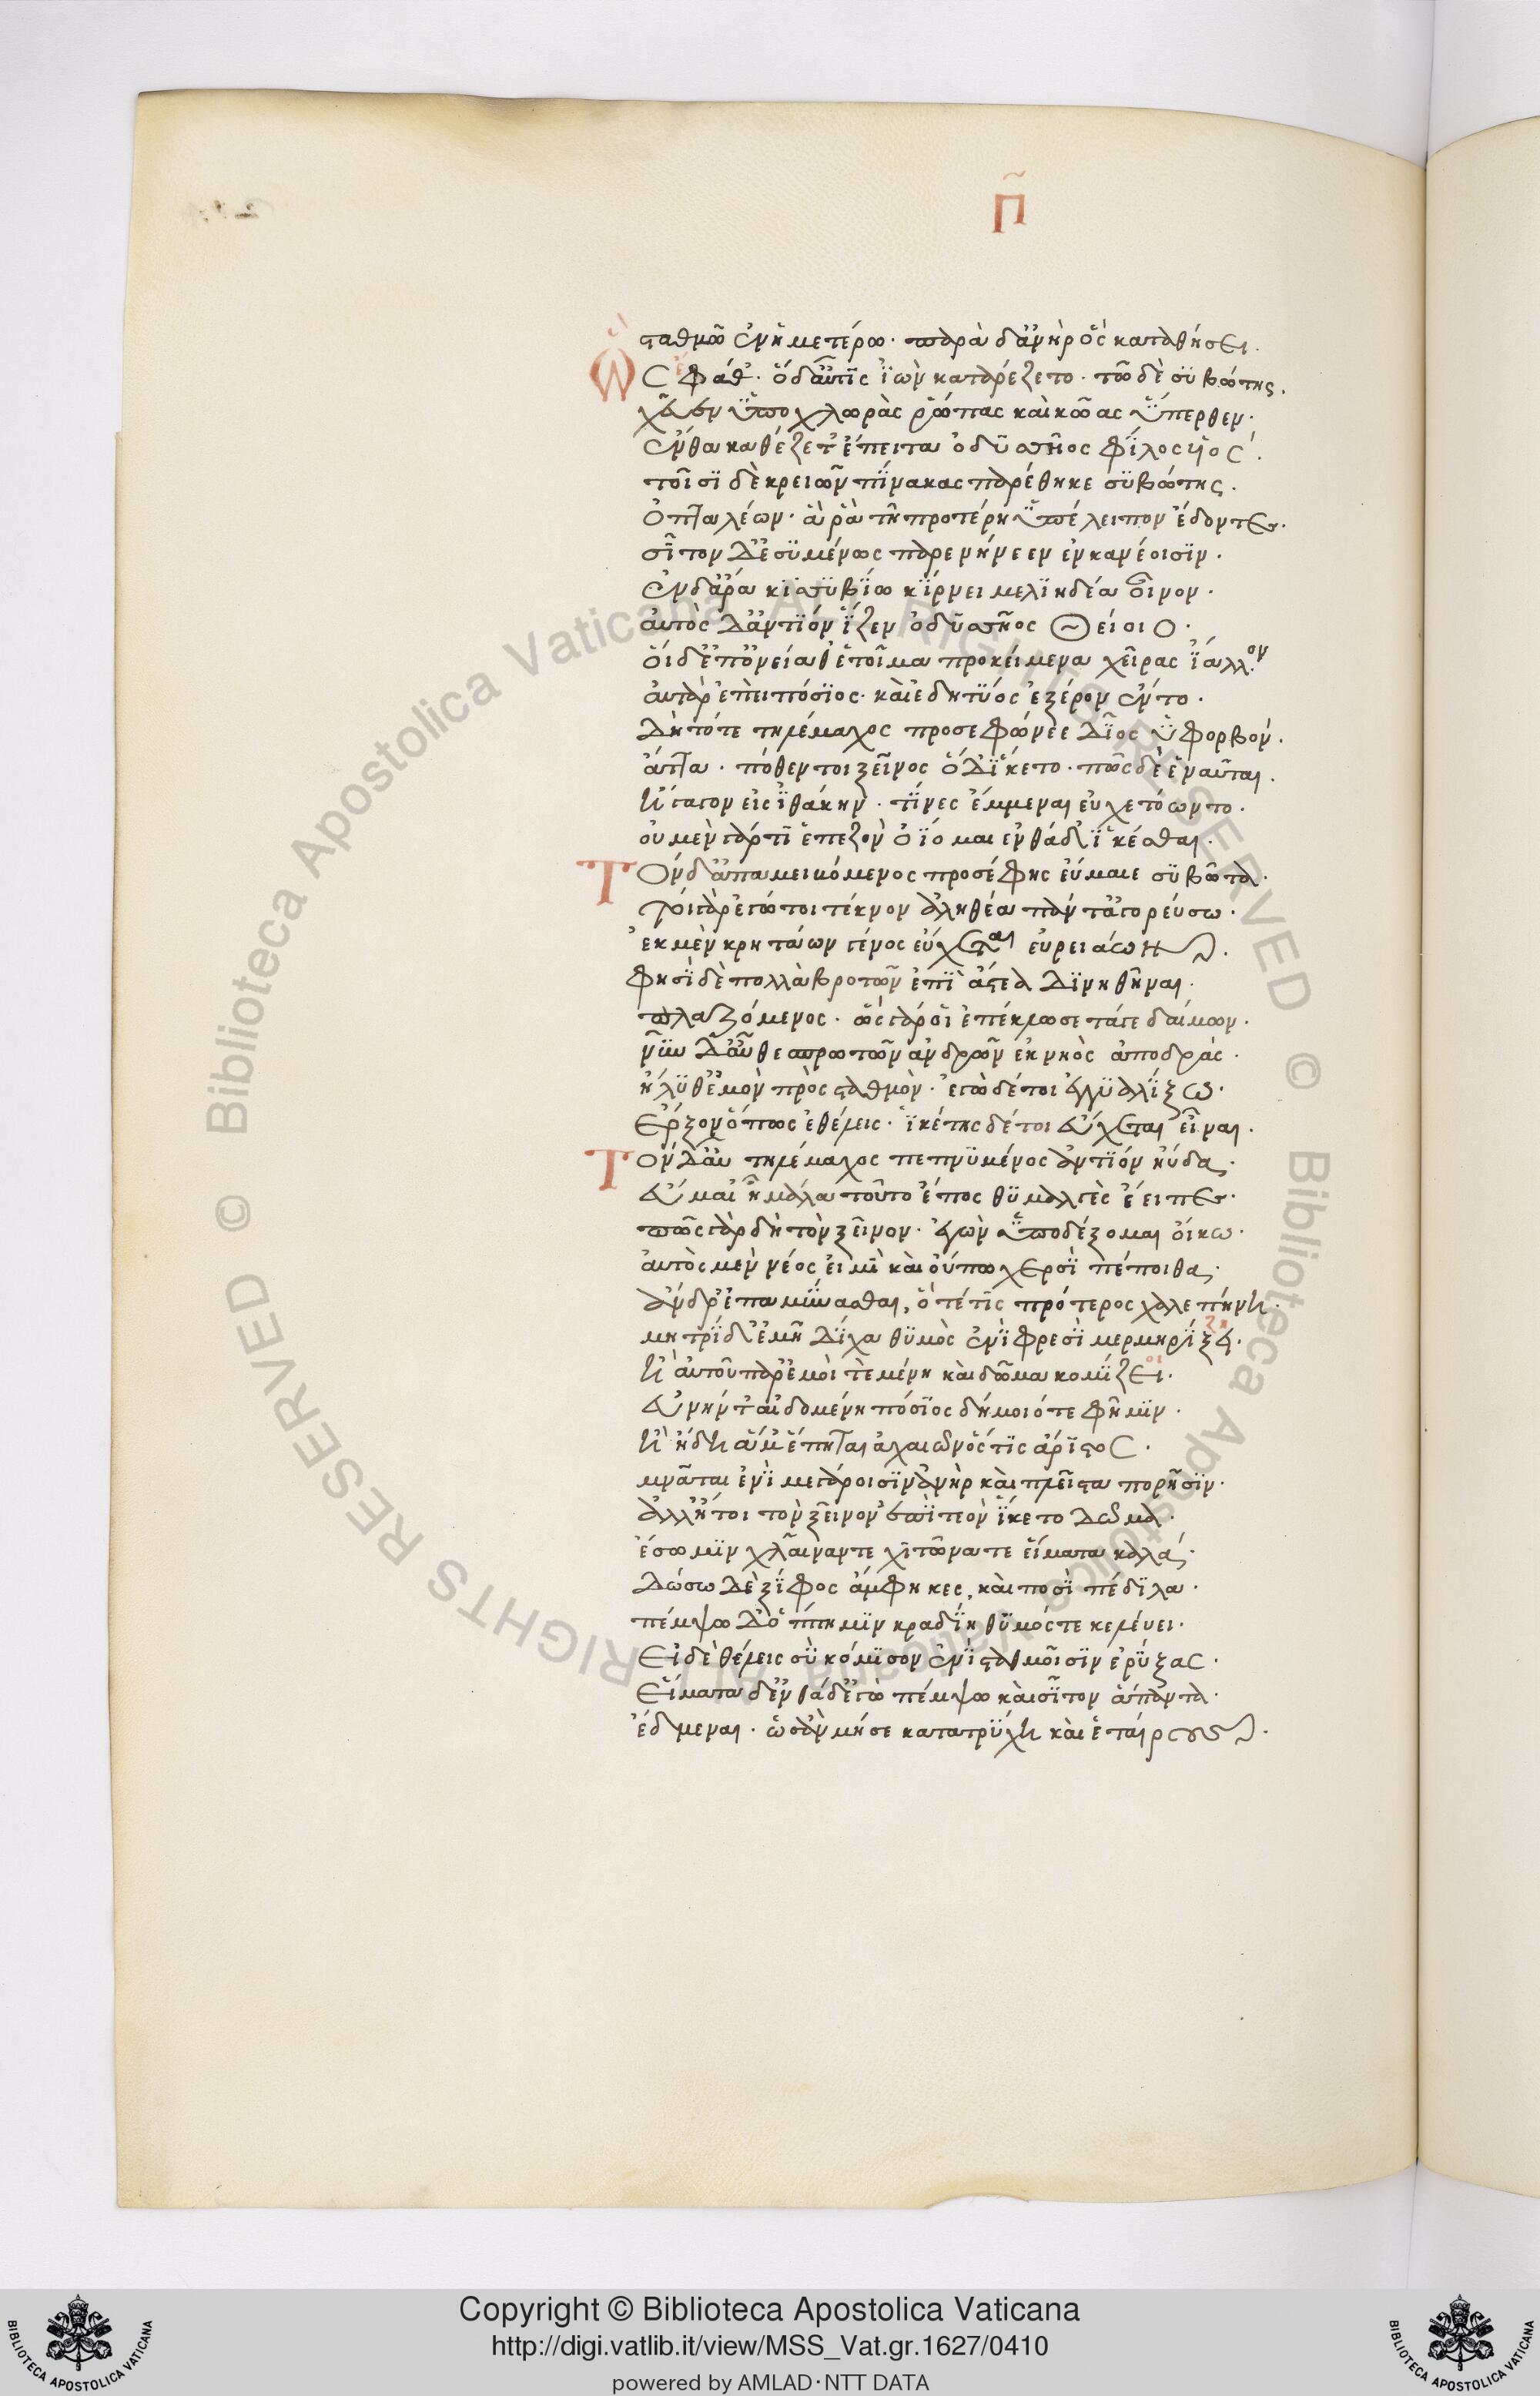 Π̃
σταθμῶ ἐν ἡμετέρω· παρὰ δ' ἀνὴρ ὃς καταθήσει.
Ὣς φάθ'· ὅδ' αὖτις ἰὼν κατ' ἄρ' ἕζετο· τῶ δὲ συβώτης.
χεῦεν ὕπο χλωρὰς ῥῶπας καὶ κῶας ὕπερθεν·
ἔνθα καθέζετ' ἔπειτα ὀδυσσῆος φίλος υἱός.
τοῖσι δὲ κρειῶν πίνακας παρέθηκε συβώτης.
ὀπταλέων· ἅ ῥα τῆ προτέρη ὑπέλειπον ἔδοντες·
σῖτον δ' ἐσυμένως παρενήνεεν ἐν κανέοισιν·
ἐν δ' ἄρα κισσυβίω κίρνει μελιηδέα οἶνον·
αὐτὸς δ' ἀντίον ἷζεν ὀδυσσῆος θείοιο·
οἱ δ' ἐπ' ὀνείαθ' ἑτοῖμα προκείμενα χεῖρας ἴαλλον·
αὐτὰρ ἐπεὶ πόσιος· καὶ ἐδητύος ἐξ ἔρον ἕντο·
δὴ τότε τηλέμαχος προσεφώνεε δῖος ὑφορβόν.
ἄττα· πόθεν τοι ξεῖνος ὅδ' ἵκετο· πῶς δέ ἑ ναῦται.
ἤγαγον εἰς ἰθάκην· τίνες ἔμμεναι εὐχετόωντο·
οὐ μὲν γάρ τί ἑ πεζὸν ὀΐομαι ἐνθάδ' ἱκέσθαι.
Τὸν δ' ἀπαμειβόμενος προσέφης εὔμαιε συβῶτα·
τοιγὰρ ἐγώ τοι τέκνον ἀληθέα πάντ' ἀγορεύσω·
ἐκ μὲν κρητάων γένος εὔχεται εὐρειάων·
φησὶ δὲ πολλὰ βροτῶν ἐπὶ ἄστεα δινηθῆναι.
πλαζόμενος· ὣς γάρ οἱ ἐπέκλωσε τάγε δαίμων·
νῦν δ' αὖ θεσπρωτῶν ἀνδρῶν ἐκ νηὸς ἀποδράς·
ἤλυθ' ἐμὸν πρὸς σταθμὸν· ἐγὼ δέ τοι ἐγγυαλίξω·
ἔρξον ὅπως ἐθέλεις· ἱκέτης δέ τοι εὔχεται εἶναι.
Τὸν δ' αὖ τηλέμαχος πεπνυμένος ἀντίον ηὔδα·
εὔμαι' ἦ μάλα τοῦτο ἔπος θυμαλγὲς ἔειπες·
πῶς γὰρ δὴ τὸν ξεῖνον· ἐγὼν ὑποδέξομαι οἴκω·
αὐτὸς μὲν νέος εἰμὶ καὶ οὔπω χερσὶ πέποιθα·
ἄνδρ' ἐπαμύνασθαι, ὅτέ τις πρότερος χαλεπήνη·
μητρὶ δ' ἐμῆ δίχα θυμὸς ἐνὶ φρεσὶ μερμηρίξει·
ἢ αὐτοῦ παρ' ἐμοί τε μένη καὶ δῶμα κομίζει·
εὐνήν τ' αἰδομένη πόσιος δήμοιό τε φῆμιν·
ἢ ἤδη ἅμ' ἕπηται ἀχαιῶν ὅς τις ἄριστος·
μνᾶται ἐνὶ μεγάροισιν ἀνὴρ καὶ πλεῖστα πορῆσιν·
ἀλλ' ἤτοι τὸν ξεῖνον ἐπεὶ τεὸν ἵκετο δῶμα·
ἕσω μιν χλαῖναν τε χιτῶνα τε εἵματα καλά·
δώσω δὲ ξίφος ἄμφηκες, καὶ ποσὶ πέδιλα·
πέμψω δ' ὅππη μιν κραδίη θυμός τε κελεύει·
εἰ δὲ θέλεις σὺ κόμισον ἐνὶ σταθμοῖσιν ἐρύξας·
εἵματα δ' ἐνθάδ' ἐγὼ πέμψω καὶ σῖτον ἅπαντα·
ἔδμεναι· ὡς ἂν μή σε κατατρύχη καὶ ἑταίρους·
Copyright © Biblioteca Apostolica Vaticana
http://digi.vatlib.it/view/MSS_Vat.gr.1627/0410
powered by AMLAD·NTT DATA